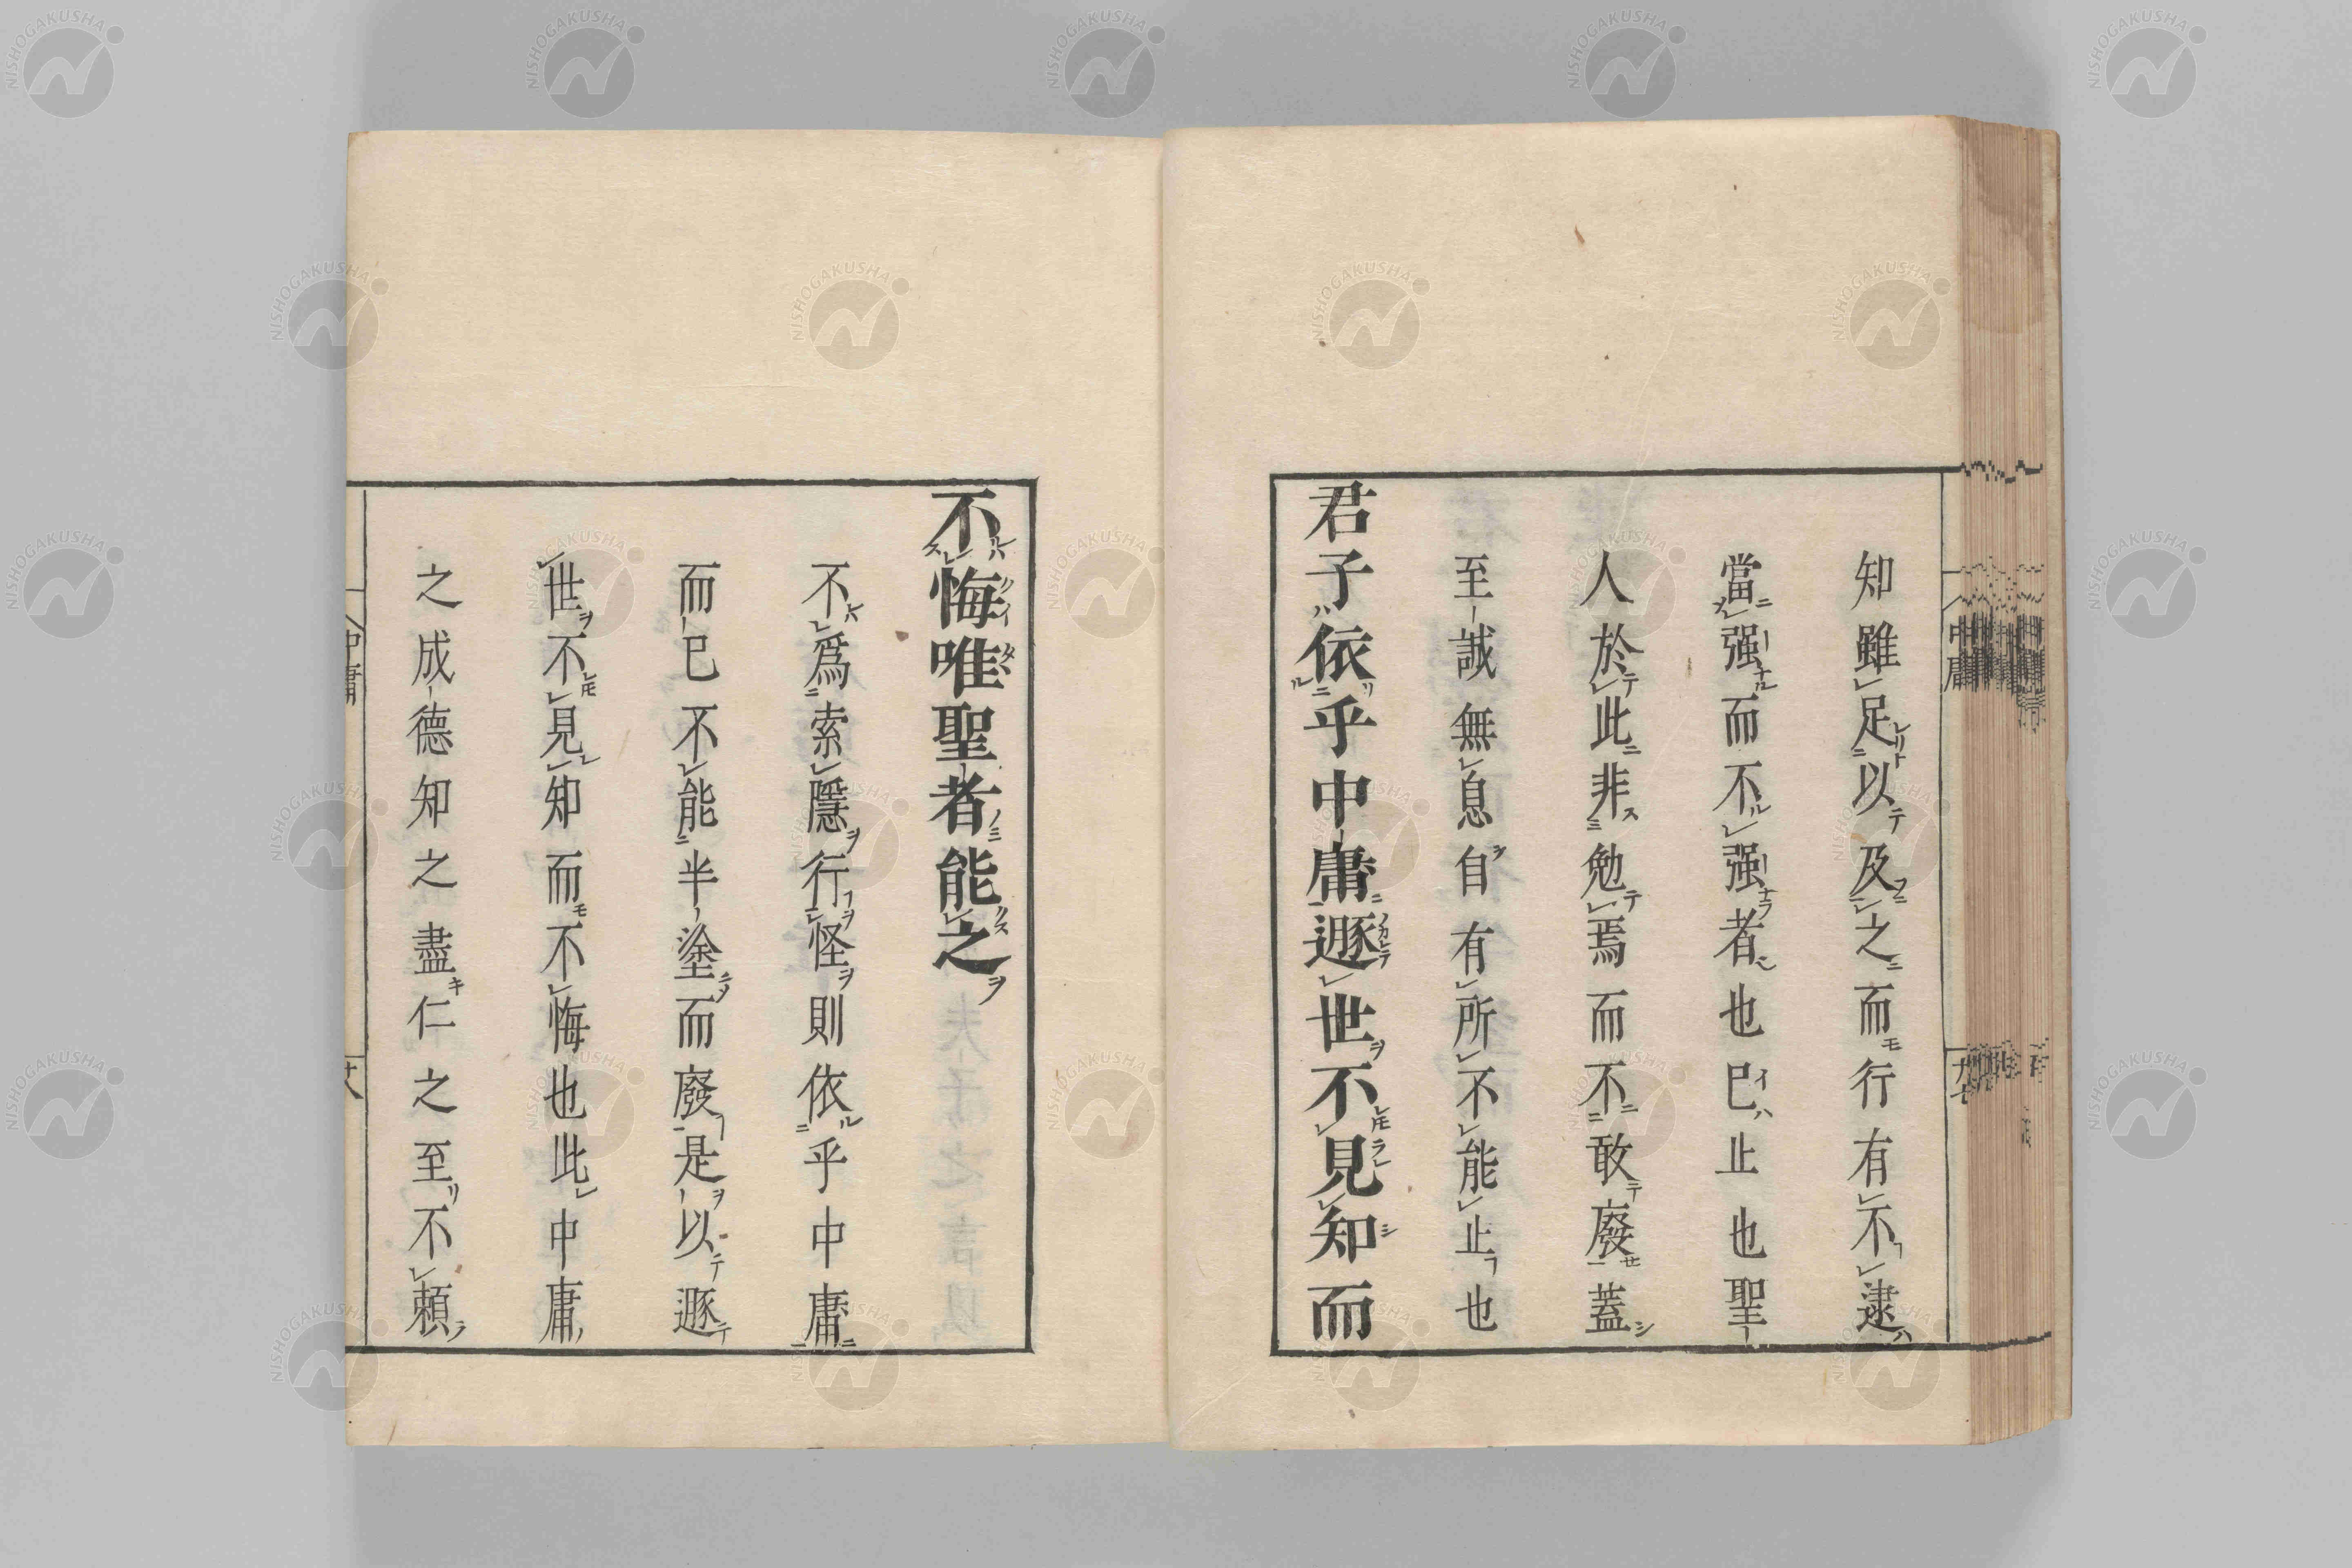 知雖足以及之而行有不逮
當强而不强者也已止也聖
人於此非勉焉而不敢廢蓋
至誠無息自有所不能止也
君子依乎中庸遯世不見知而
不悔唯聖者能之
不爲索隱行怪則依乎中庸
而已不能半塗而廢是以遯
世不見知而不悔也此中庸
之成德知之盡仁之至不頼
中庸